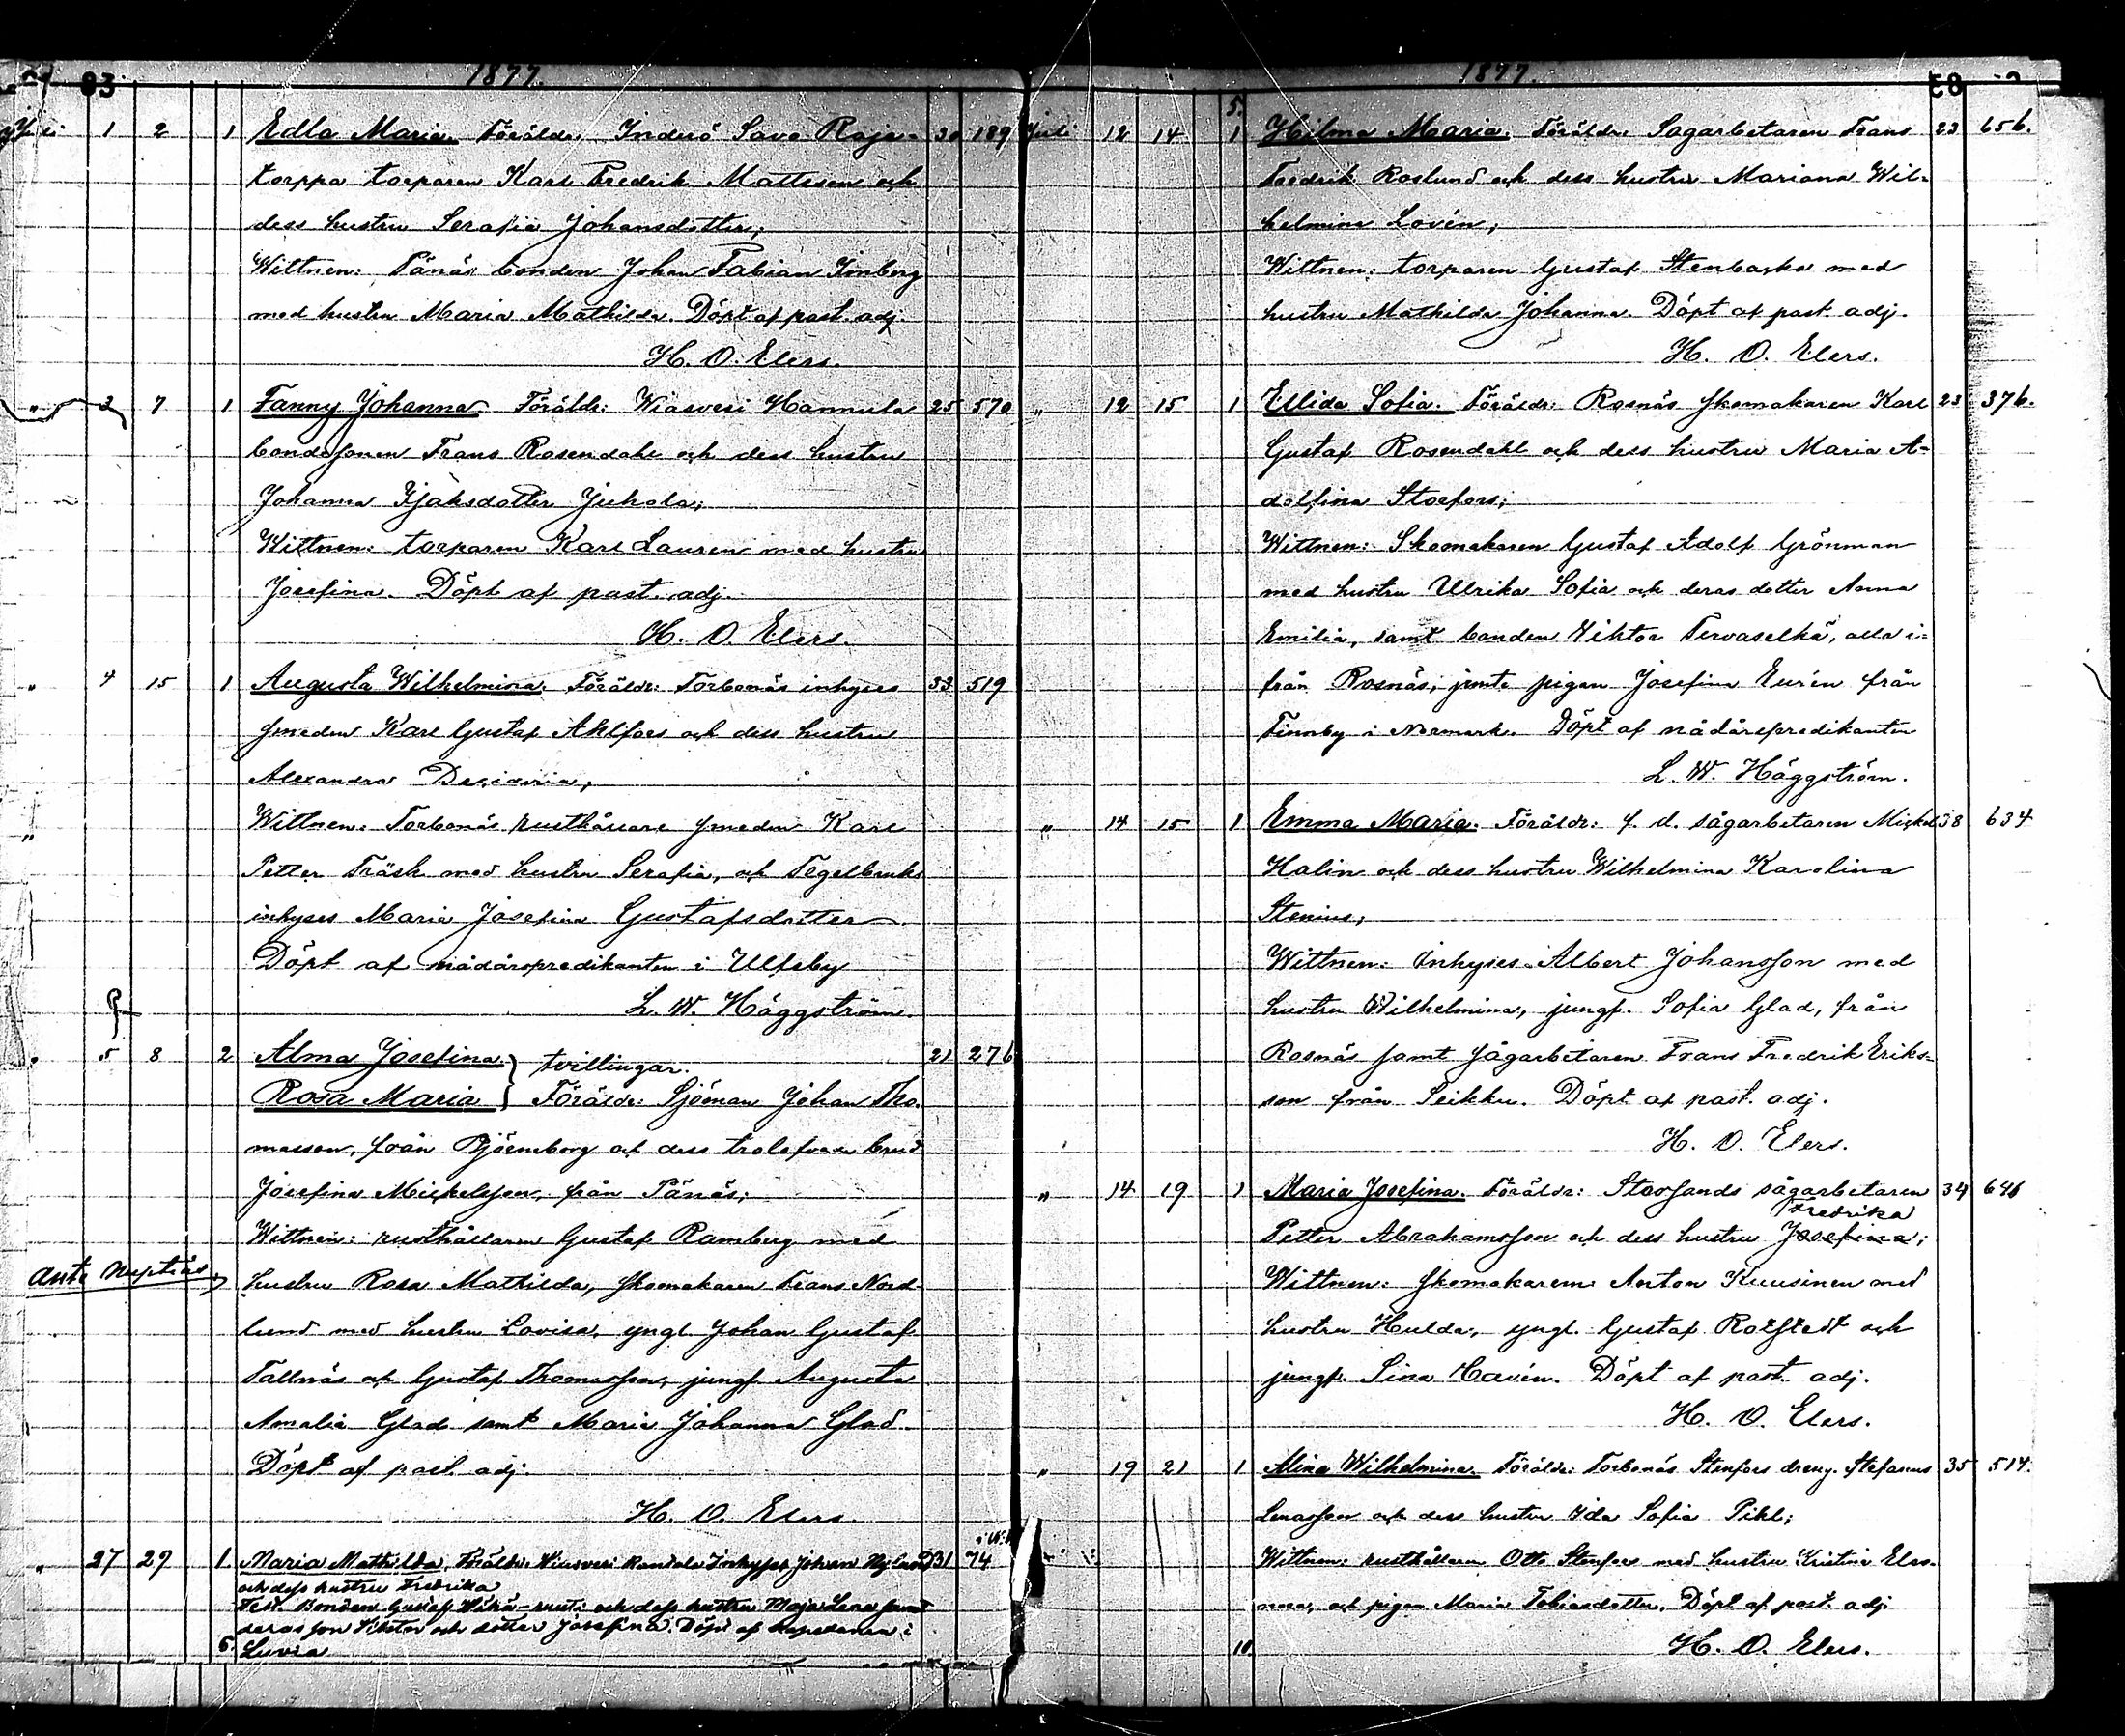 1877.
83
Juli 1 2 1 Edla Maria. Föräldr. Inderö Savo Raja- 30 189
torppa torparen Karl Fredrik Mattsson och
dess hustru Serafia Johansdotter;
Wittnen: Pänäs bonden Johan Fabian Simberg
med hustru Maria Mathilda. Döpt af past. adj.
H. O. Elers.
" 3 7 1 Fanny Johanna. Föräldr: Wiasvesi Hannula 25 570
bondesonen Frans Rosendahl och dess hustru
Johanna Isaksdotter Juhola;
Wittnen: torparen Karl Lauren med hustru
Josefina. Döpt af past. adj.
H. O. Elers.
" 4 15 1 Augusta Wilhelmina. Föräldr: Torbonäs inhyses 33 519
smeden Karl Gustaf Ahlfors och dess hustru
Alexandra Desideria;
Wittnen: Torbonäs rusthållare smeden Karl
Petter Träsk med hustru Serafia, och Tegelbruks
inhyses Maria Josefina Gustafsdotter.
Döpt af nådårspredikanten i Ulfsby
L. W. Häggström.
" 5 8 2 Alma Josefina } tvillingar. 21 276
Rosa Maria } Föräldr: Sjöman Johan Tho-
masson, från Björneborg och dess trolofvade brud
Josefina Mickelsson, från Pänäs;
Wittnen: rusthållaren Gustaf Ramberg med
ante nuptias. hustru Rosa Mathilda, skomakaren Frans Nord-
lund med hustru Lovisa, yngl. Johan Gustaf
Tallnäs och Gustaf Thomasson, jungf. Augusta
Amalia Glad samt Maria Johanna Glad
Döpt af past. adj.
H. O. Elers.
" 27 29 1 Maria Mathilda, Föräldr: Wiasvesi Randala Inhyses Johan Nylund 31 74
och dess hustru Fredrika
Test. Bonden Gustaf och dess hustru Maja Lena samt
deras son Viktor och dotter Josefina. Döpt af kapellanen i
6. Luvia
1877.
83
5.
Juli 12 14 1 Hilma Maria. Föräldr. Sagarbetaren Frans 23 656.
Fredrik Roslund och dess hustru Mariana Wil-
helmina Lovén;
Wittnen: torparen Gustaf Stenbacka med
hustru Mathilda Johanna. Döpt af past. adj.
H. O. Elers.
" 12 15 1 Ellida Sofia. Föräldr: Rosnäs skomakaren Karl 23 376.
Gustaf Rosendahl och dess hustru Maria A-
dolfina Storfors;
Wittnen: Skomakaren Gustaf Adolf Grönman
med hustru Ulrika Sofia och deras dotter Anna
Emilia, samt bonden Viktor Tervaselkä, alla i-
från Rosnäs, jemte pigan Josefina Eurén från
Finnby i Normark. Döpt af nådårspredikanten
L. W. Häggström.
" 14 15 1 Emma Maria. Föräldr: f. d. sågarbetaren Mickel 38 634
Halin och dess hustru Wilhelmina Karolina
Stenius;
Wittnen: Inhyses Albert Johansson med
hustru Wilhelmina, jungf. Sofia Glad, från
Rosnäs samt sågarbetaren Frans Fredrik Eriks-
son från Seikku. Döpt af past. adj.
H. O. Elers.
" 14 19 1 Maria Josefina. Föräldr: Storsands sågarbetaren 34 646
Fredrika
Petter Abrahamsson och dess hustru Josefina;
Wittnen: Skomakaren Anton Kuusinen med
hustru Hulda, yngl. Gustaf Rotstedt och
jungf. Sina Cavén. Döpt af past. adj.
H. O. Elers.
" 19 21 1 Alina Wilhelmina. Föräldr: Torbonäs Stenfors dreng. Stefanus 35 514.
Lenasson och dess hustru Ida Sofia Pihl;
Wittnen: rusthållaren Otto Stenfors med hustru Kristina Eleo-
nora, och pigan Maria Tobiasdotter. Döpt af past. adj.
10. H. O. Elers.